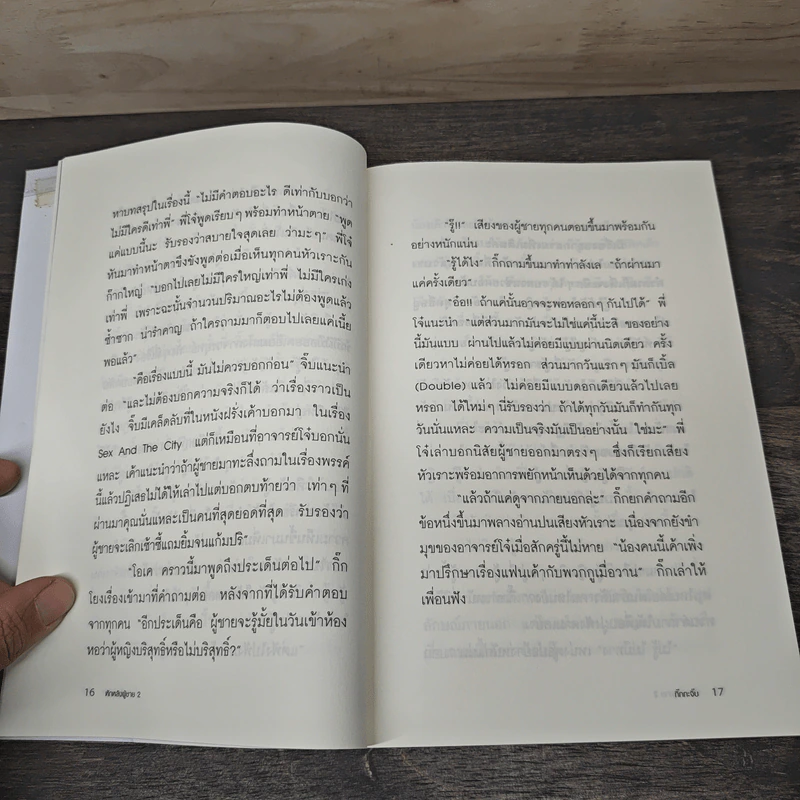 หาบทสรุปในเรื่องนี้ "ไม่มีคำตอบอะไร ดีเท่ากับบอกว่า
ไม่มีใครดีเท่าพี่" พี่โจ้พูดเรียบๆ พร้อมทำหน้าตาย "พูด
แค่แบบนี้นะ รับรองว่าสบายใจสุดเลย ว่ามะๆ" พี่โจ้
หันมาทำหน้าตาขึงขังพูดต่อเมื่อเห็นทุกคนหัวเราะกัน
ก๊ากใหญ่ "บอกไปเลยไม่มีใครใหญ่เท่าพี่ ไม่มีใครเก่ง
เท่าพี่ เพราะฉะนั้นจำนวนปริมาณอะไรไม่ต้องพูดแล้ว
ซ้ำซาก น่ารำคาญ ถ้าใครถามมาก็ตอบไปเลยแค่เนี้ย
พอแล้ว"
"คือเรื่องแบบนี้ มันไม่ควรบอกก่อน" จิ๊บแนะนำ
ต่อ "และไม่ต้องบอกความจริงก็ได้ ว่าเรื่องราวเป็น
ยังไง จิ๊บมีเคล็ดลับที่ในหนังฝรั่งเค้าบอกมา ในเรื่อง
Sex And The City แต่ก็เหมือนที่อาจารย์โจ้บอกนั่น
แหละ เค้าแนะนำว่าถ้าผู้ชายมาทะลึ่งถามในเรื่องพรรค์
นี้แล้วปฏิเสธไม่ได้ให้เล่าไปแต่บอกตบท้ายว่า เท่าๆ ที่
ผ่านมาคุณนั่นแหละเป็นคนที่สุดยอดที่สุด รับรองว่า
ผู้ชายจะเลิกเซ้าซี้แถมยิ้มจนแก้มปริ"
"โอเค คราวนี้มาพูดถึงประเด็นต่อไป" กิ๊ก
โยงเรื่องเข้ามาที่คำถามต่อ หลังจากที่ได้รับคำตอบ
จากทุกคน "อีกประเด็นคือ ผู้ชายจะรู้มั้ยในวันเข้าห้อง
หอว่าผู้หญิงบริสุทธิ์หรือไม่บริสุทธิ์?"
16 คักคลับผู้ชาย 2
"รู้!!" เสียงของผู้ชายทุกคนตอบขึ้นมาพร้อมกัน
อย่างหนักแน่น
"รู้ได้ไง" กิ๊กถามขึ้นมาทำท่าลังเล "ถ้าผ่านมา
แค่ครั้งเดียว"
"อ๋อ!! ถ้าแค่นั้นอาจจะพอหลอกๆ กันไปได้" พี่
โจ้แนะนำ "แต่ส่วนมากมันจะไม่ใช่แค่นี้น่ะสิ ของอย่าง
นี้มันแบบ ผ่านไปแล้วไม่ค่อยมีแบบผ่านนิดเดียว ครั้ง
เดียวหาไม่ค่อยได้หรอก ส่วนมากวันแรกๆ มันก็เบิ้ล
(Double) แล้ว ไม่ค่อยมีแบบดอกเดียวแล้วไปเลย
หรอก ได้ใหม่ๆ นี่รับรองว่า ถ้าได้ทุกวันมันก็ทำกันทุก
วันนั่นแหละ ความเป็นจริงมันเป็นอย่างนั้น ใช่มะ" พี่
โจ้เล่าบอกนิสัยผู้ชายออกมาตรงๆ ซึ่งก็เรียกเสียง
หัวเราะพร้อมอาการพยักหน้าเห็นด้วยได้จากทุกคน
"แล้วถ้าแค่ดูจากภายนอกล่ะ" กิ๊กยกคำถามอีก
ข้อหนึ่งขึ้นมาพลางอ่านปนเสียงหัวเราะ เนื่องจากยังขำ
มุขของอาจารย์โจ้เมื่อสักครู่นี้ไม่หาย "น้องคนนี้เค้าเพิ่ง
มาปรึกษาเรื่องแฟนเค้ากับพวกกูเมื่อวาน" กิ๊กเล่าให้
เพื่อนฟัง
กิ๊กกะจิ๊บ 17